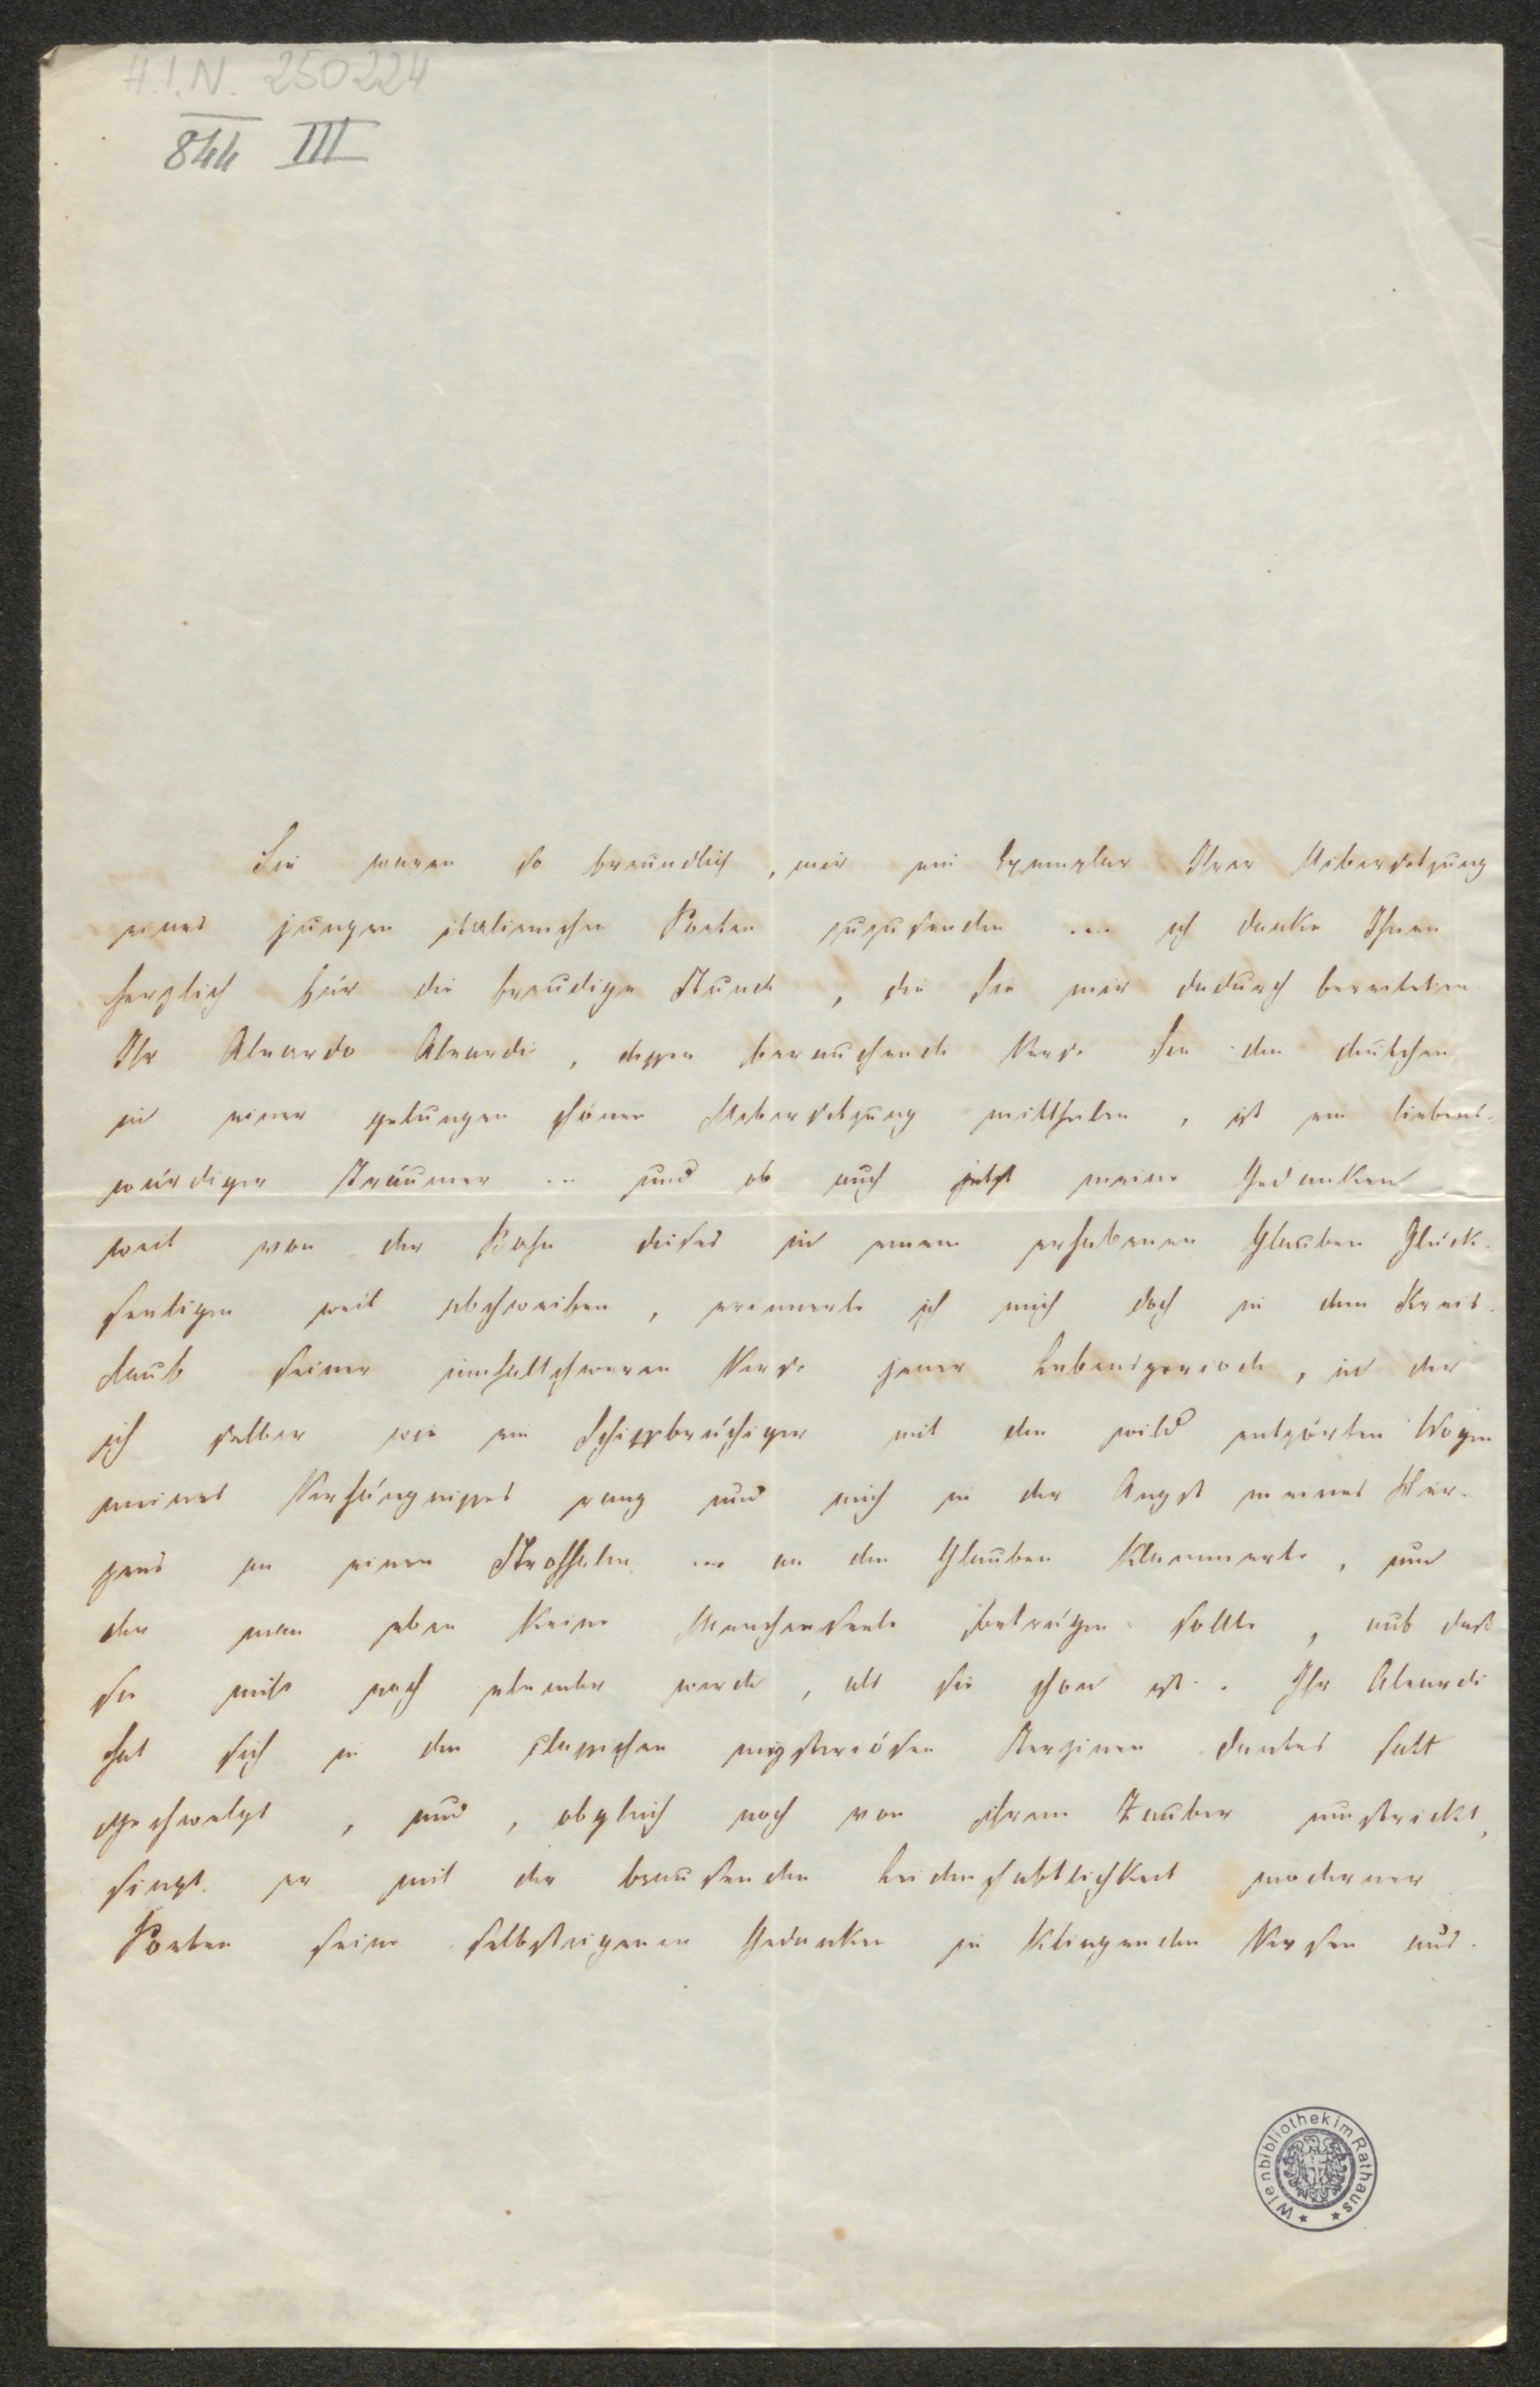 H.I.N. 250224
844 III
Sie waren so freundlich, mir ein Exemplar Ihrer Uebersetzung
eines jungen italienischen Poeten zuzusenden ... ich danke Ihnen
herzlich für die freudige Stunde, die Sie mir dadurch bereiteten
Ihr Aleardo Aleardi, dessen berauschende Verse Sie den deutschen
in einer gelungen schönen Uebersetzung mittheilen, ist ein liebens-
würdiger Träumer ... und ob auch jetzt meine Gedanken
weit von der Bahn dieses in einem erhabenen Glauben Glück-
seeligen weit abschweifen, erinnerte ich mich doch in dem Kreis-
laufe seiner inhaltschweren Verse jener Lebensperiode, in der
ich selber wie ein Schiffbrüchiger mit den wild empörten Wogen
meines Verhängnisses rang und mich in der Angst meines Her-
zens an einen Strohhalm ... an den Glauben klammerte, um
den man eben keine Menschenseele betrügen sollte, auf daß
sie nicht noch elender werde, als sie schon ist. Ihr Aleardi
hat sich in den classischen mysteriösen Terzinen Dantes satt
geschwelgt, und, obgleich noch von ihrem Zauber umstrickt,
singt er mit der brausenden Leidenschaftlichkeit moderner
Poeten seine selbsteigenen Gedanken in klingenden Versen aus.
Wienbibliothek im Rathaus